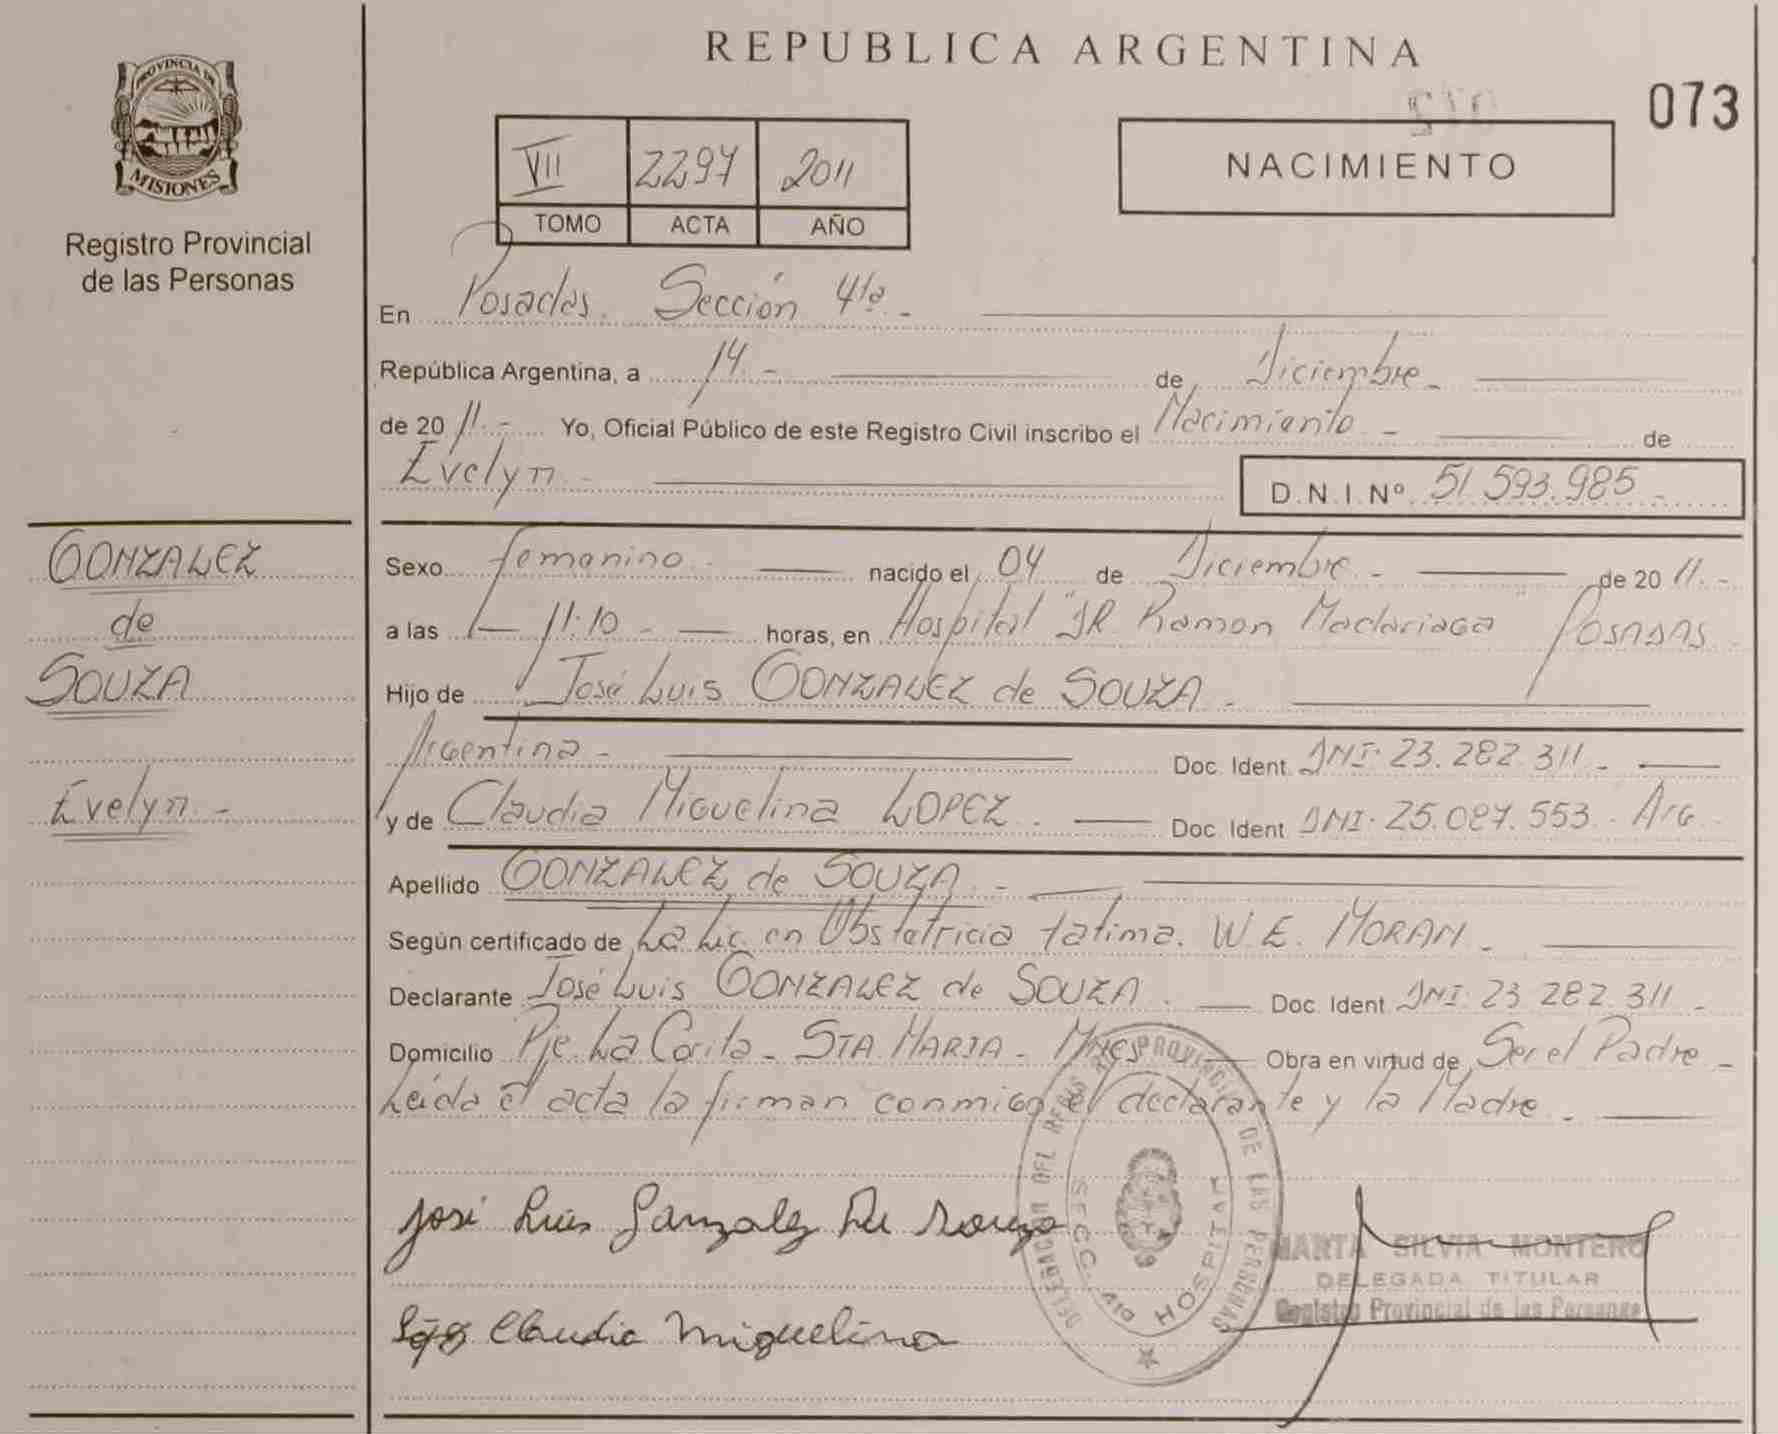 REPUBLICA ARGENTINA
073
PROVINCIA DE
MISIONES
Registro Provincial
de las Personas
VII 2297 2011
TOMO ACTA AÑO
NACIMIENTO
En Posadas. Sección 4ta.-
República Argentina, a 14.- de Diciembre.-
de 2011.- Yo, Oficial Público de este Registro Civil inscribo el Nacimiento - de
Evelyn.- D.N.I. Nº 51.593.985.-
GONZALEZ
de
SOUZA
Evelyn.-
Sexo femenino.- nacido el 04 de Diciembre.- de 2011.-
a las 11.10.- horas, en Hospital "DR. Ramon Madariaga" POSADAS.-
Hijo de José Luis GONZALEZ de SOUZA.-
Argentina.- Doc. Ident. DNI. 23.282.311.-
y de Claudia Miguelina LOPEZ. Doc. Ident. DNI. 25.087.553. Arg.
Apellido GONZALEZ de SOUZA.-
Según certificado de La Lic. en Obstetricia fatima. W. E. MORAN.-
Declarante José Luis GONZALEZ de SOUZA. Doc. Ident. DNI. 23.282.311.-
Domicilio Pje. La - STA. MARIA - Mnes Obra en virtud de Ser el Padre.-
Leída el acta la firman conmigo el declarante y la Madre.-
DELEGACION DEL REG. PROVINCIAL DE LAS PERSONAS
SECC. 4ta HOSPITAL
José Luis Gonzalez De Souza
MARTA SILVIA MONTERO
DELEGADA TITULAR
Registro Provincial de las Personas
Claudia Miguelina